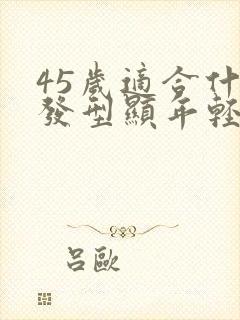 45歲適合什
發型顯年輕
呂歐